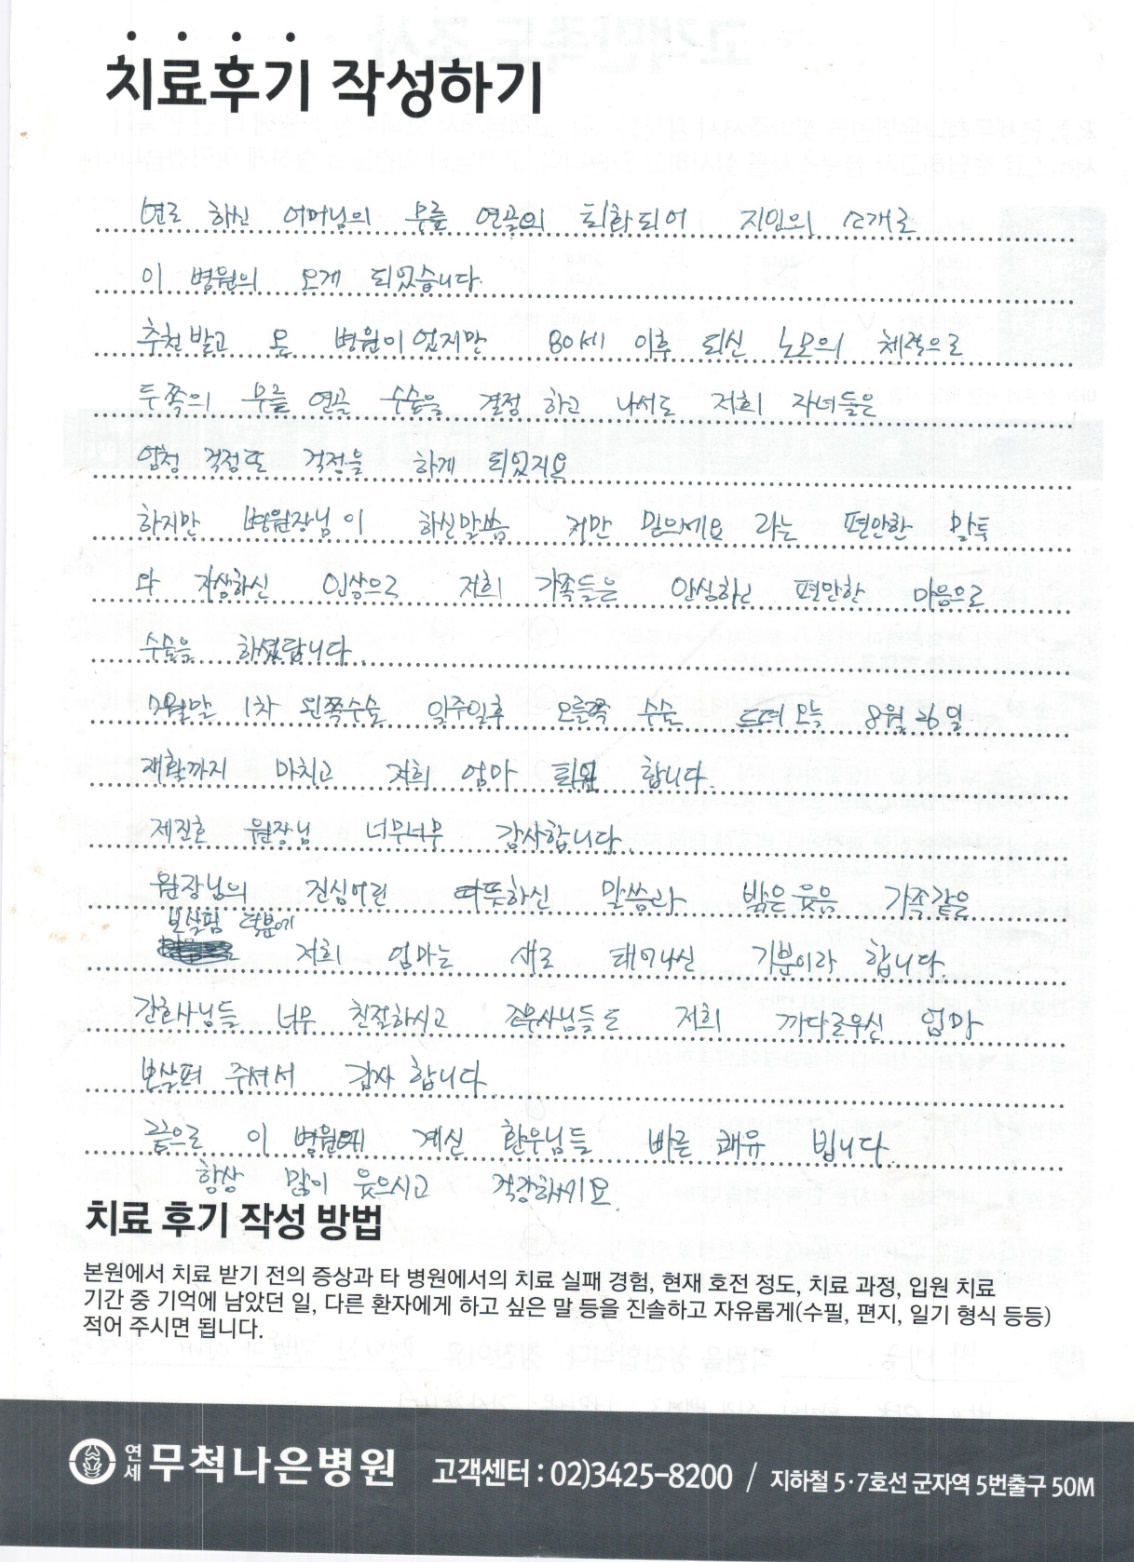 치료후기 작성하기
연로 하신 어머님의 무릎 연골의 퇴화되어 지인의 소개로
이 병원의 오게 되었습니다.
추천받고 온 병원이 었지만 80세 이후 되신 노모의 체력으로
두쪽의 무릎 연골 수술을 결정 하고 나서도 저희 자녀들은
엄청 걱정또 걱정을 하게 되었지요
하지만 병원장님이 하신말씀 저만 믿으세요 라는 편안한 말투
와 자상하신 인상으로 저희 가족들은 안심하고 편안한 마음으로
수술을 하셨답니다.
7월말 1차 왼쪽수술 일주일후 오른쪽 수술 드뎌 오늘 8월 26일
재활까지 마치고 저희 엄마 퇴원 합니다.
제진호 원장님 너무너무 감사합니다.
원장님의 진심어린 따뜻하신 말씀과 밝은 웃음 가족같은
보살핌 덕분에
저희 엄마는 새로 태어나신 기분이라 합니다.
간호사님들 너무 친절하시고 조무사님들도 저희 까다로우신 엄마
보살펴 주셔서 감사 합니다.
끝으로 이 병원에 계신 환우님들 바른 쾌유 빕니다.
항상 많이 웃으시고 건강하세요.
치료 후기 작성 방법
본원에서 치료 받기 전의 증상과 타 병원에서의 치료 실패 경험, 현재 호전 정도, 치료 과정, 입원 치료
기간 중 기억에 남았던 일, 다른 환자에게 하고 싶은 말 등을 진솔하고 자유롭게(수필, 편지, 일기 형식 등등)
적어 주시면 됩니다.
연세 무척나은병원 고객센터 : 02)3425-8200 / 지하철 5·7호선 군자역 5번출구 50M